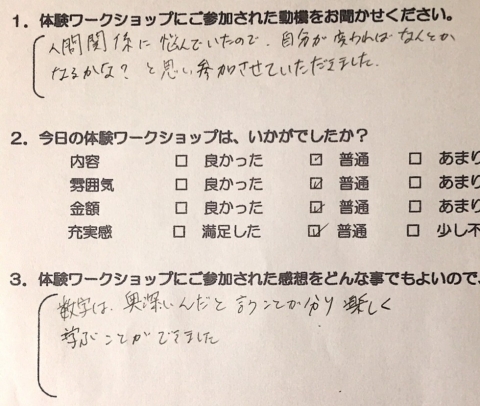 1．体験ワークショップにご参加された動機をお聞かせください。
人間関係に悩んでいたので、自分が変わればなんとか
なるかな？と思い参加させていただきました.
2．今日の体験ワークショップは、いかがでしたか？
内容 □ 良かった ☑ 普通 □ あまり
雰囲気 □ 良かった ☑ 普通 □ あまり
金額 □ 良かった ☑ 普通 □ あまり
充実感 □ 満足した ☑ 普通 □ 少し不
3．体験ワークショップにご参加された感想をどんな事でもよいので、
数字は、奥深いんだと言うことが分り楽しく
学ぶことができました